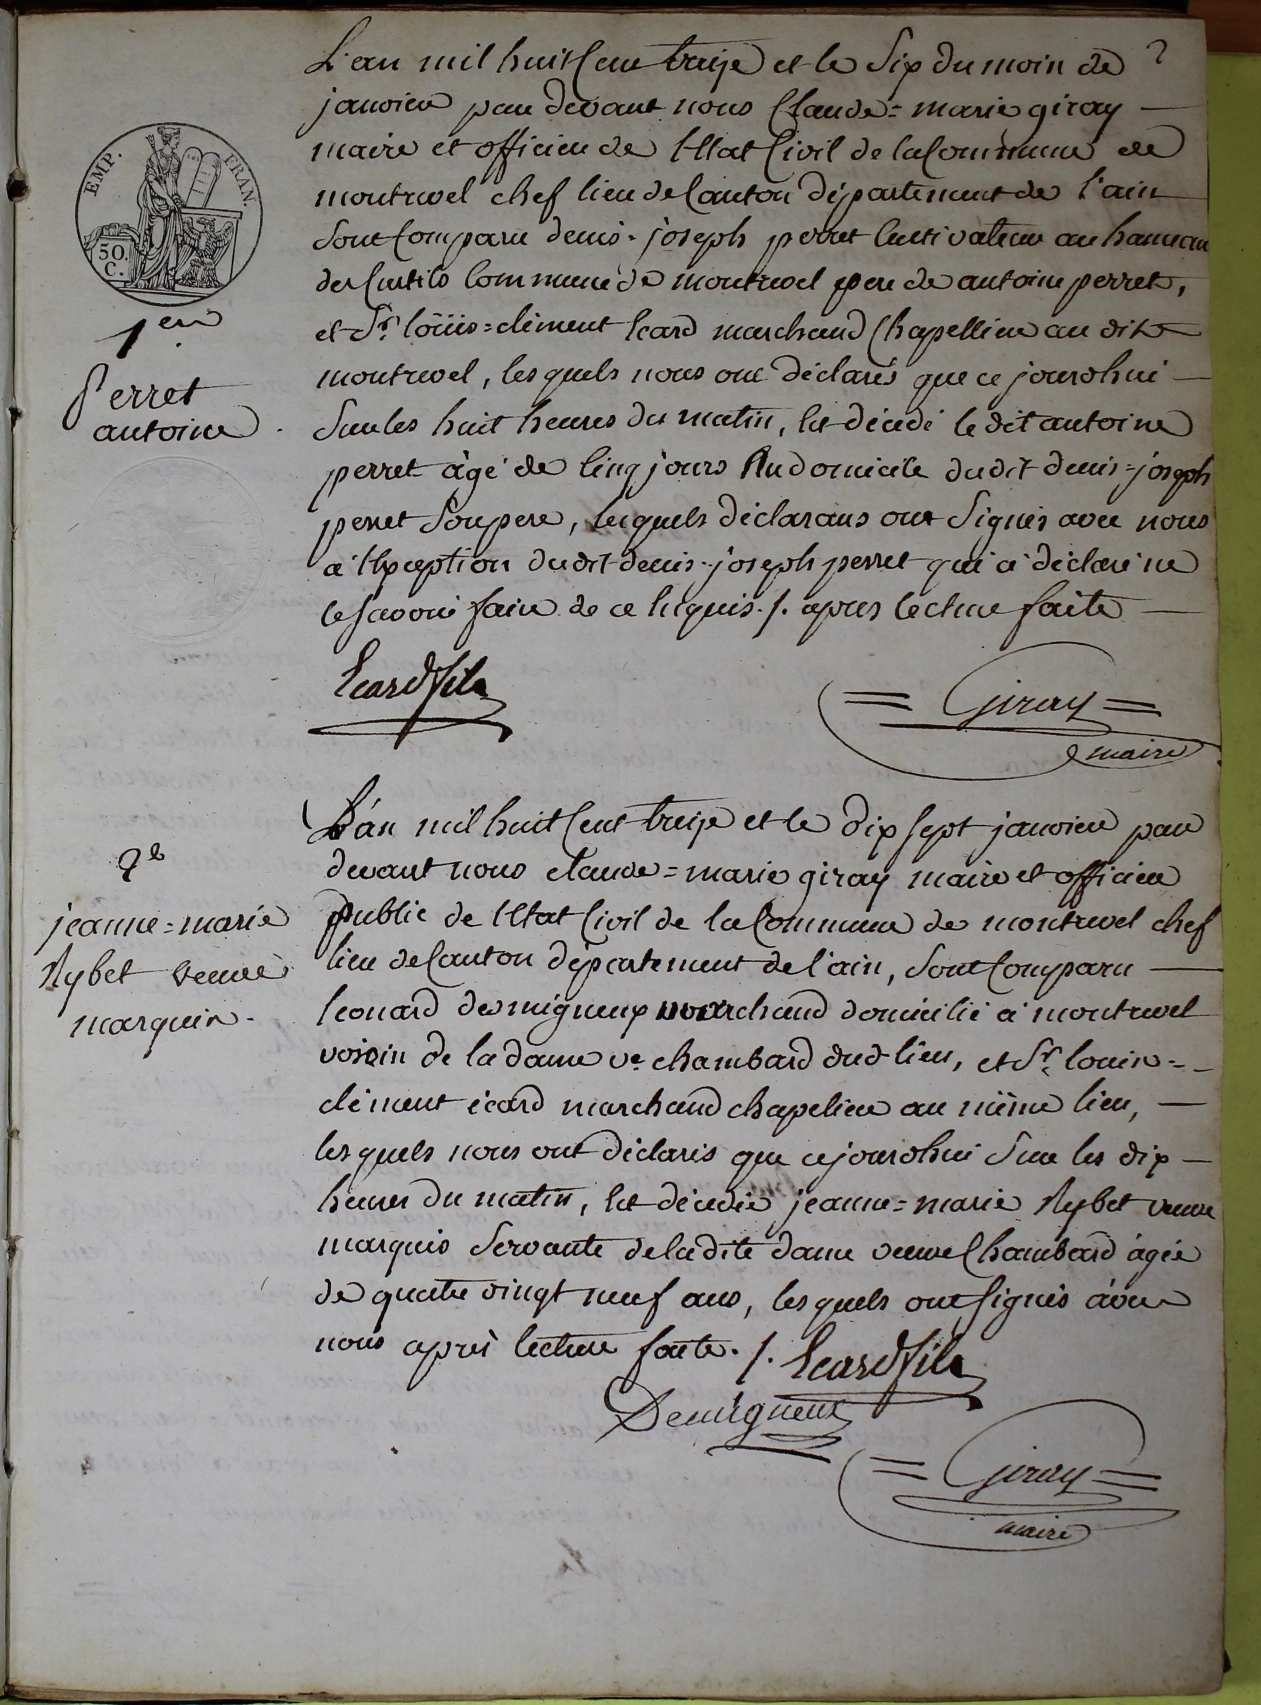 EMP. FRAN.
50.
C.
1ere
Perret
antoine
L'an mil huit Cent treize et le Six du mois de
janvier par devant nous Claude=marie giray
maire et officier de l'Etat Civil de la Commune de
montrevel chef lieu de Canton département de l'ain
Sont Comparu denis-joseph perret Cultivateur au hameau
des Curtils Commune de montrevel pere de antoine perret,
et Sr. loüis=clément Ecard marchand Chapellier au dit
montrevel, les quels nous ont déclarés que ce jourd'hui
Sur les huit heures du matin, Est décédé le dit antoine
perret âgé de Cinq jours Au domicile du dit denis=joseph
perret Son pere, lesquels déclarans ont Signés avec nous
a l'Exception du dit denis-joseph perret qui a déclaré ne
le Savoir faire de ce Requis ./. apres lecture faite
Ecard fils
= Giray =
maire
2e
jeanne=marie
Rybet veuve
marquis.
L'an mil huit Cent treize et le dix Sept janvier par
devant nous claude=marie giray maire et officier
public de l'Etat Civil de la Commune de montrevel chef
lieu de Canton département de l'ain, Sont Comparu
Leonard desmigneux marchand domicilié a montrevel
voisin de la dame ve. chambard dud. lieu, et Sr. louis=
clément écard marchand chapelier au même lieu,
les quels nous ont déclarés que cejourd'hui Sur les dix
heures du matin, Est décédée jeanne=marie Rybet veuve
marquis Servante de la dite dame veuve Chambard âgée
de quatre vingt neuf ans, les quels ont Signés avec
nous après lecture faite ./. Ecard fils
Demigneux
= Giray =
maire